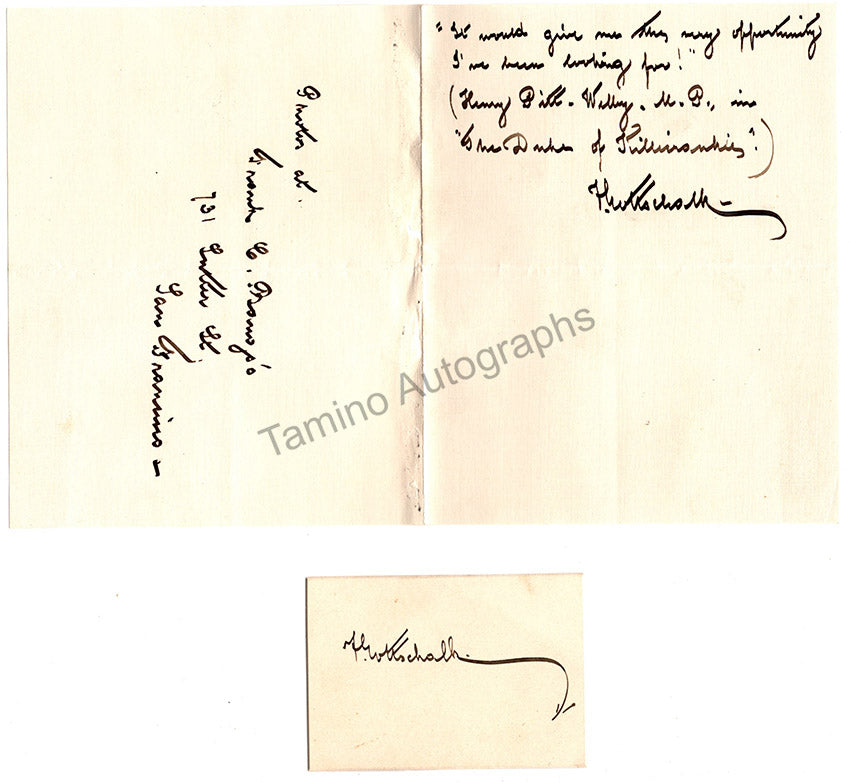 "It would give me the very opportunity
I've been looking for!"
(Henry Pitt-Welby, M.P., in
"The Duke of Killicrankie".)
F. Gottschalk
Photos at.
Frank C.
731 Sutter St.
San Francisco
Tamino Autographs
F. Gottschalk.